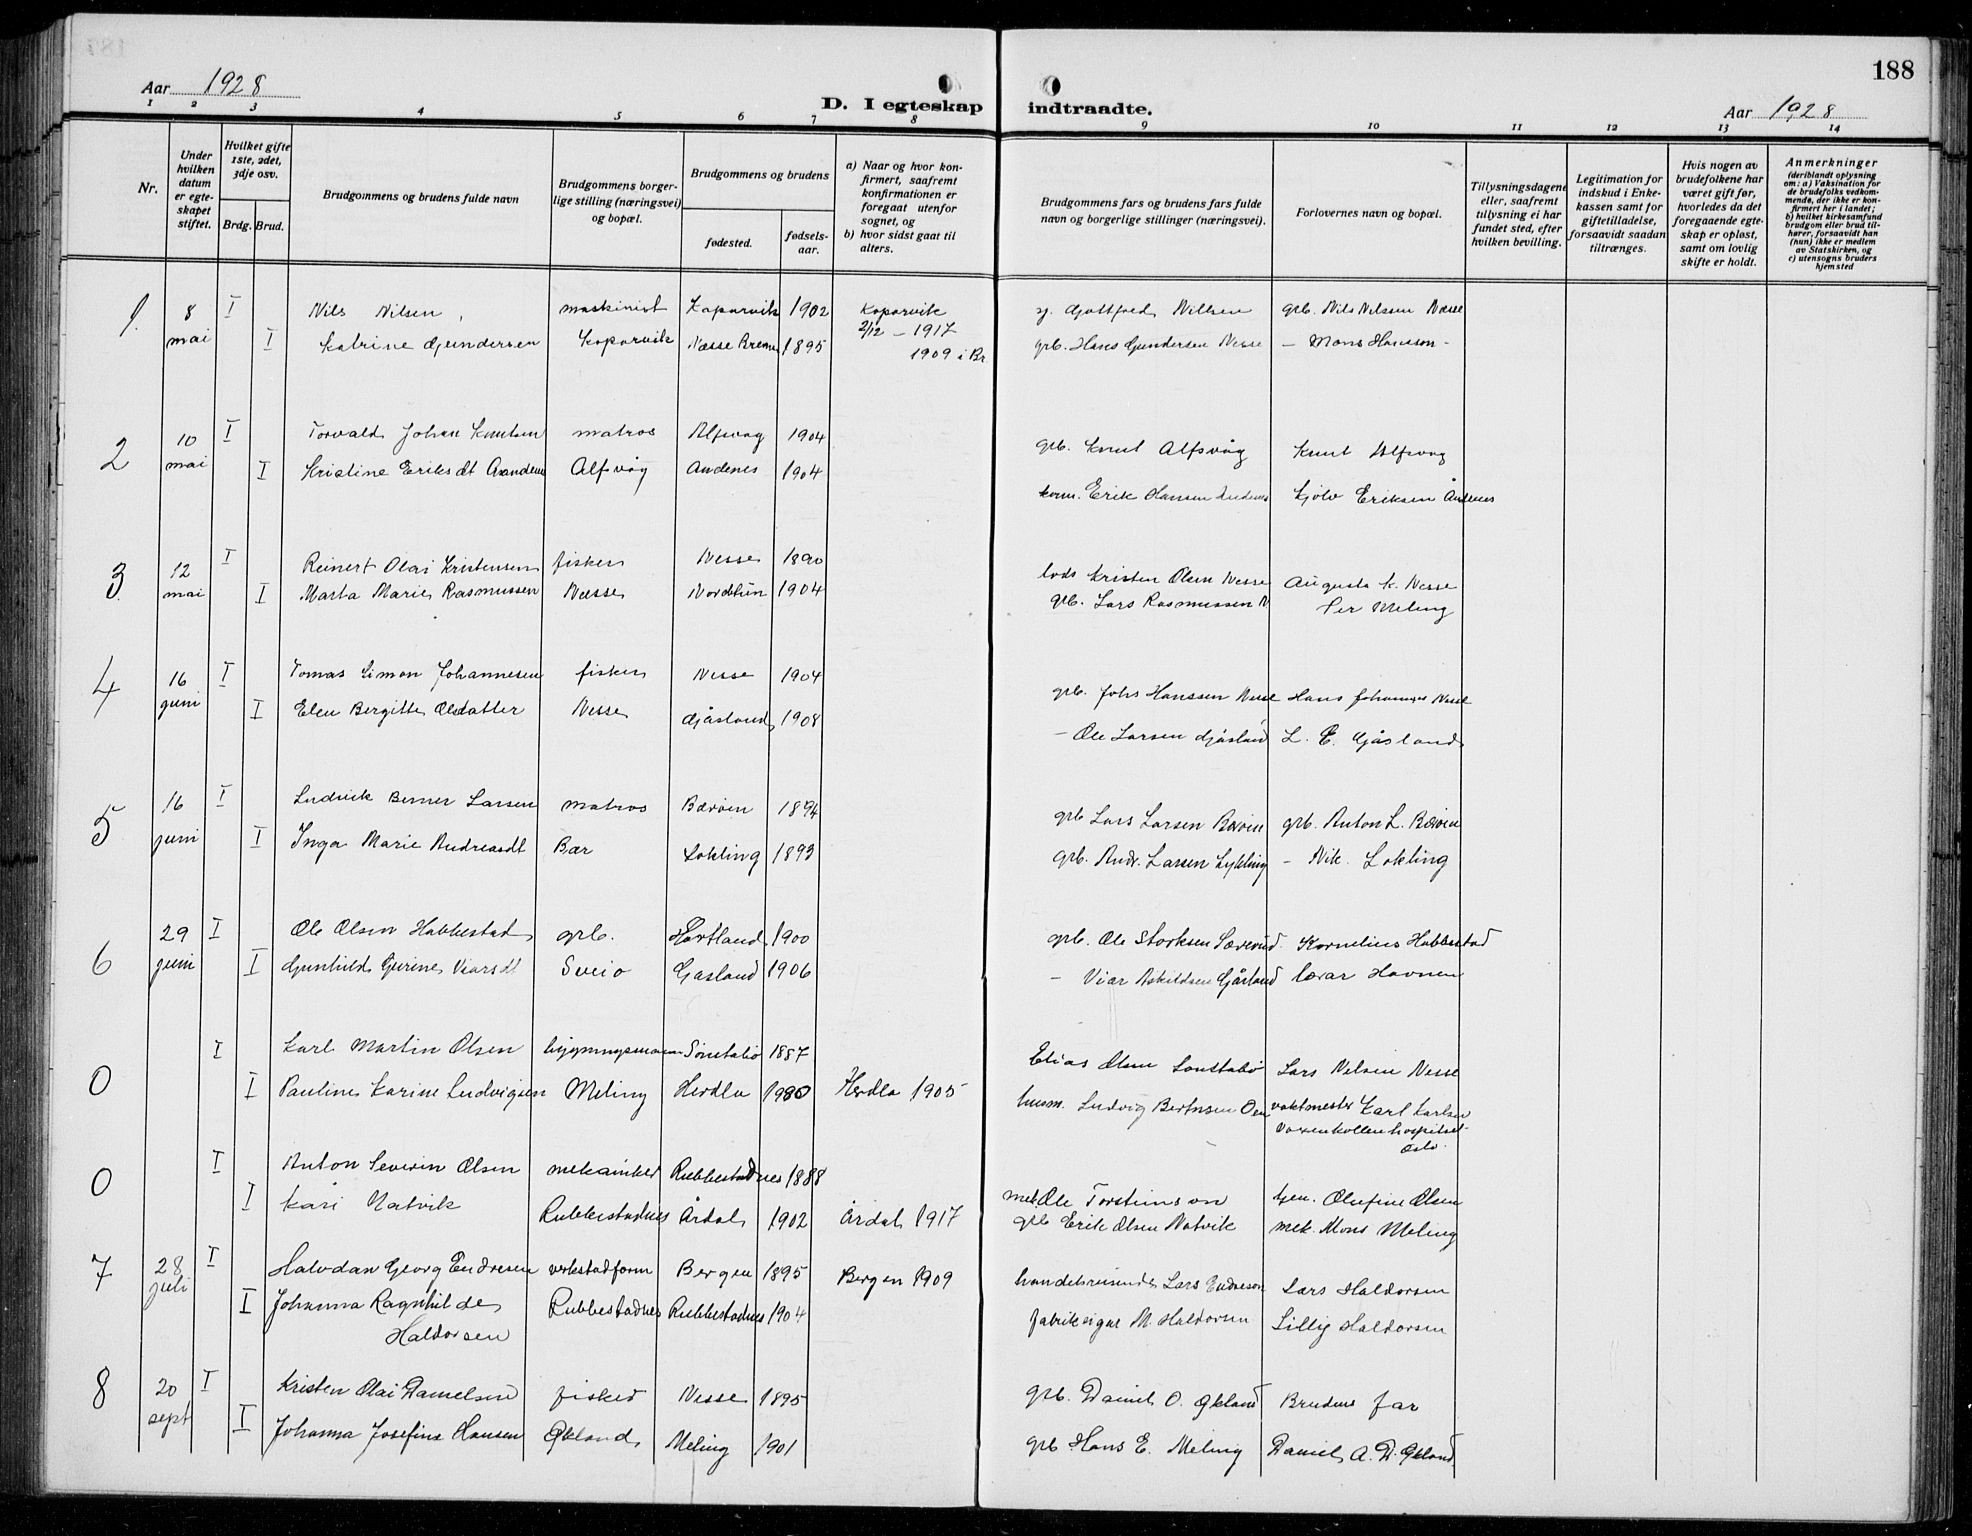 188
Aar 1928
D. I egteskap indtraadte.
Aar 1928
1 2 3 4 5 6 7 8 9 10 11 12 13 14
Nr.
Under hvilken datum er egteskapet stiftet.
Hvilket gifte 1ste, 2det, 3dje osv.
Brdg. Brud.
Brudgommens og brudens fulde navn
Brudgommens borgerlige stilling (næringsvei) og bopæl.
Brudgommens og brudens
fødested. fødselsaar.
a) Naar og hvor konfirmert, saafremt konfirmationen er foregaat utenfor sognet, og
b) hvor sidst gaat til alters.
Brudgommens fars og brudens fars fulde navn og borgerlige stillinger (næringsvei).
Forlovernes navn og bopæl.
Tillysningsdagene eller, saafremt tillysning ei har fundet sted, efter hvilken bevilling.
Legitimation for indskud i Enkekassen samt for giftetilladelse, forsaavidt saadan tiltrænges.
Hvis nogen av brudefolkene har været gift før, hvorledes da det foregaaende egteskap er opløst, samt om lovlig skifte er holdt.
Anmerkninger (deriblandt oplysning om: a) Vaksination for de brudefolks vedkommende, der ikke er konfirmert her i landet; b) hvilket kirkesamfund brudgom eller brud tilhører, forsaavidt han (hun) ikke er medlem av Statskirken, og c) utensogns bruders hjemsted
1. 8 I Nils Nilsen maskinist Koparvik 1902 Koparvik Gottfred Nillsen grb. Nils Nilssen Nesse
mai I Katrine Gundersen Koparvik Nesse Bremn 1895 2/12 - 1917 grb. Hans Gundersen Nesse - Mons Hansson -
1909 i Br.
2 10 I Torvald Johan Knutsen matros Alfsvag 1904 grb. Knut Alfsvåg Knut Alfsvag
mai I Kristine Eriksdt Aandenes Alfsvåg Andenes 1904 Erik Hansen Andenes Kjølv Eriksen Åndenes
3. 12 I Reinert Olai Kristensen fisker Nesse 1890 lods Kristen Olsen Nesse Augusta K. Nesse
mai I Marta Marie Rasmussen Nesse Nordthun 1904 grb. Lars Rasmussen N Per Meling
4 16 I Tomas Simon Johannesen fisker Nesse 1904 grb. Johs Hanssen Nesse Hans Johannes Nesse
juni I Elen Bergitte Olsdatter Nesse Gjåsland 1908 - Ole Larsen Gjåsland L. E. Gjåsland
5 16 I Ludvik Berner Larsen matros Bærøen 1894 grb Lars Larsen Børøen grb. Anton L. Bærøen
juni I Inga Marie Andreasdt Bær Lokling 1893 grb. Andr. Larsen Lykling - Nik. Lokling
6 29 I Ole Olsen Habbestad grb. Hortland 1900 grb. Ole Storksen Kornelius Habbestad
juni I Gunhild Gurine Viarsdt Sveio Gasland 1906 - Viar Askildsen Gåsland lærar Havnen
0 I Karl Martin Olsen bygningsmann Sønstabø 1887 Elias Olsen Sonstabø Lars Nelsen Nesse
I Pauline Karine Ludvigsen Meling Herdla Herdla 1905 husm. Ludvig Berntsen Oen vaktmester Karl Karlsen
Voxenkollen hospitset
Oslo.
0 I Anton Severin Olsen mekaniker Rubbestadnes 1888 mek Ole Torsteinson tjen. Olufine Olsen
I Kari Natvik Rubbestadnes Årdal 1902 Årdal 1917 grb Erik Olsen Natvik mek. Mons Meling
7 28 I Halvdan Georg Endresen verkstadform Bergen 1895 Bergen 1909 handelsreisende Lars Endreson Lars Haldorsen
juli I Johanna Ragnhilde Rubbestadnes Rubbestadnes 1904 fabrikeigar M. Haldorsen Lillig Haldorsen
Haldorsen
8 20 I Kristen Olai Danielsen fisker Nesse 1895 grb. Daniel O. Økland Brudens far
sept I Johanna Josefine Hansen Økland Meling 1901 grb Hans E. Meling Daniel A. D. Økland